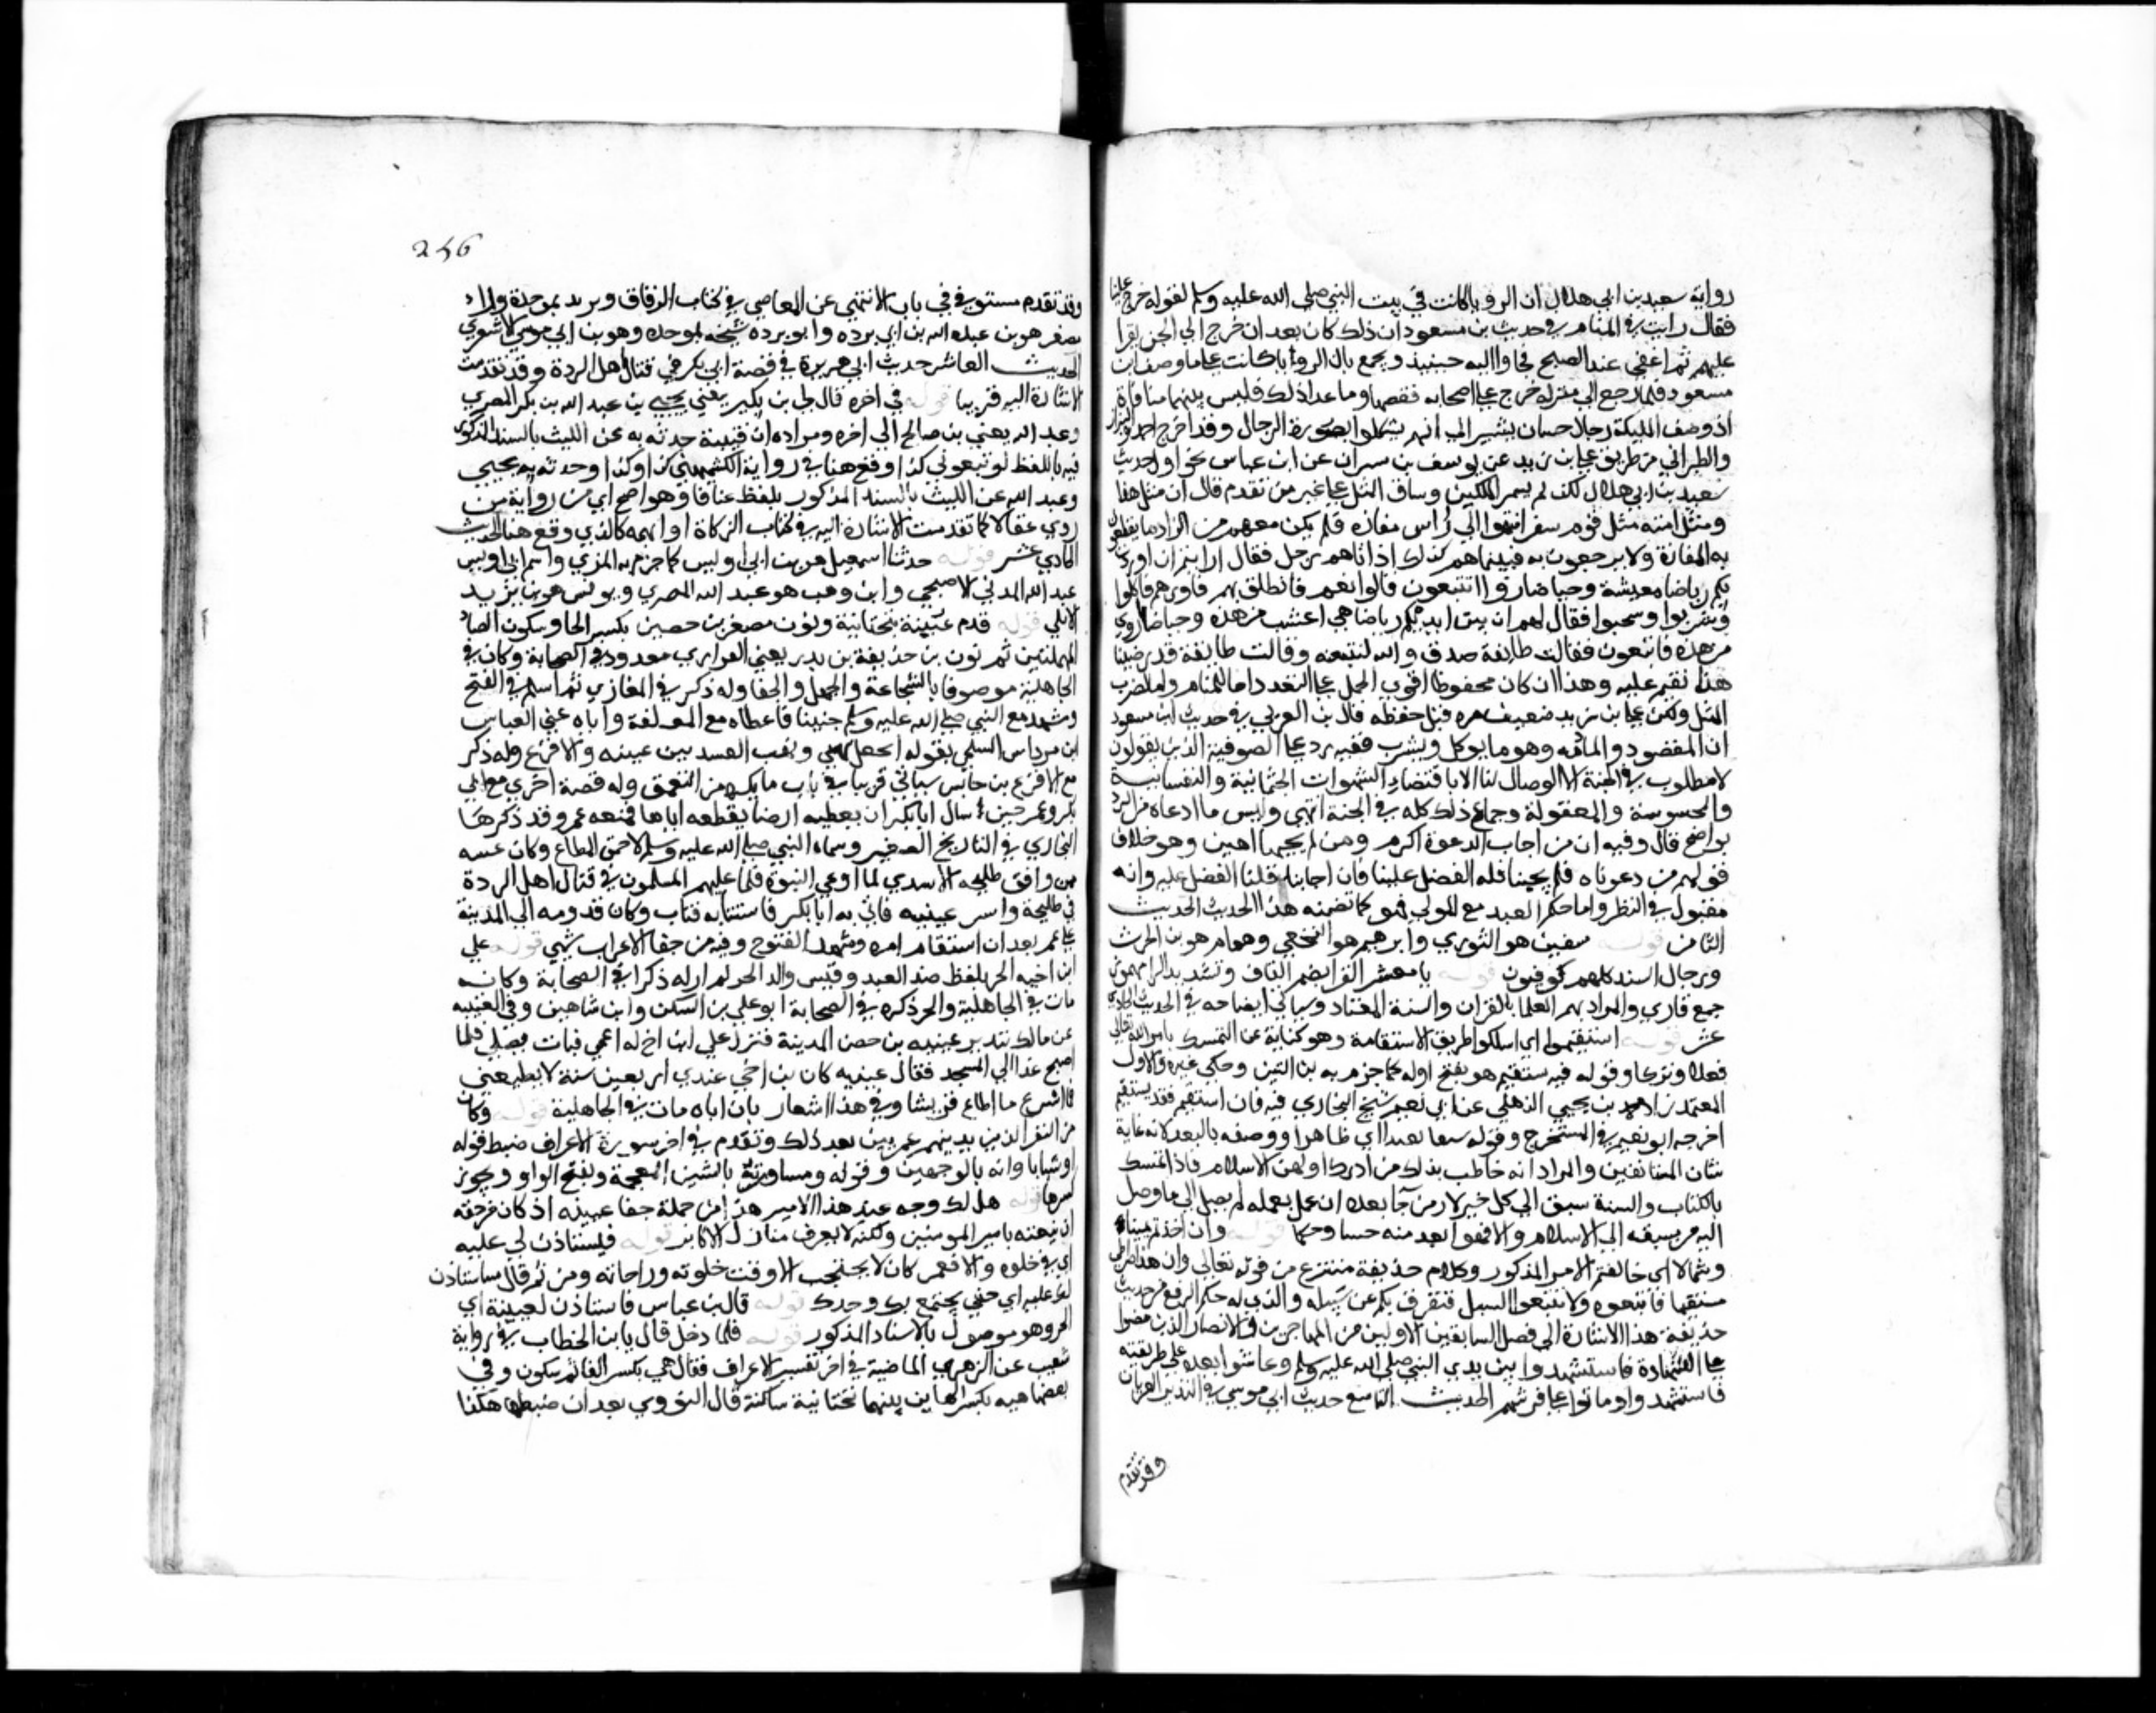 رواية سعيد بن ابي هلال ان الرويا كانت في بيت النبي صلى الله عليه وسلم لقوله خرج علينا
فقال رايت في المنام وفي حديث بن مسعود ان ذلك كان بعد ان خرج الي الجن يقرا
عليهم ثم اغفى عند الصبح فجاوا اليه حينيذ ويجمع بان الرويا كانت على ما وصف ابن
مسعود فلما رجع الي منزله خرج على اصحابه فقصها وما عدا ذلك فليس بينهما منافاة
اذ وصف المليكة برجال حسان يشير الي انهم تشكلوا بصورة الرجال وقد اخرج احمد والبزار
والطبراني من طريق علي بن زيد عن يوسف بن مهران عن ابن عباس نحو اول حديث
سعيد بن ابي هلال لكن لم يسم الملكين وساق المثل على غير من تقدم قال ان مثل هذا
ومثل امته مثل قوم سفر انتهوا الي راس مفازة فلم يكن معهم من الزاد ما يقطعون
به المفازة ولا يرجعون به فبينما هم كذلك اذ اتاهم رجل فقال ارايتم ان اوردت
بكم رياضا معيشة وحياضا روا اتتبعوني قالوا نعم فانطلق بهم فاوردهم فاكلوا
وشربوا وسمنوا فقال لهم ان بين ايديكم رياضا هي اعشب من هذه وحياضا اروى
من هذه فاتبعوني فقالت طايفة صدق والله لنتبعنه وقالت طايفة قد رضينا
هذا نقيم عليه وهذا ان كان محفوظا اقوي الحمل على التعدد اما للمنام واما لضرب
المثل ولكن علي بن زيد ضعيف من قبل حفظه قال بن العربي في حديث ابن مسعود
ان المقصود المادبه وهو ما يوكل ويشرب ففيه رد على الصوفية الذين يقولون
لا مطلوب في الجنة الا الوصال لنا الا بانقضاء الشهوات الجثمانية والنفسانية
والمحسوسة والمعقولة وجماع ذلك كله في الجنة انتهى وليس ما ادعاه من الرد
بواضح قال وفيه ان من اجاب الدعوة اكرم ومن لم يجبها اهين وهو خلاف
قولهم من دعوناه فلم يجبنا فله الفضل علينا فان اجابنا فلنا الفضل عليه وانه
مقبول في النظر واما حكم العبد مع المولي فهو كما تضمنه هذا الحديث الحديث
الثامن قوله سفين هو الثوري وابرهيم هو النخعي وهمام هو بن الحرث
ورجال السند كلهم كوفيون قوله يا معشر القرا بضم القاف وتشديد الرا مهموز
جمع قاري والمراد بهم العلما بالقران والسنة العباد وسياتي ايضاحه في الحديث الحادي
عشر قوله استقيموا اي اسلكوا طريق الاستقامة وهو كناية عن التمسك بامر الله تعالى
فعلا وتركا وقوله فيه سبقتم هو بفتح اوله كما جزم به بن التين وحكى غيره والاول
المعتمد زاد محمد بن يحيي الذهلي عن ابي نعيم شيخ البخاري فيه فان استقمتم فقد سبقتم
اخرجه ابو نعيم في المستخرج وقوله سبقا بعيدا اي ظاهرا ووصفه بالبعد لانه غاية
شان المتسابقين والمراد انه خاطب بذلك من ادرك اوايل الاسلام فاذا تمسك
بالكتاب والسنة سبق الي كل خير لان من جآ بعده ان عمل بعمله لم يصل الي ما وصل
اليه من سبقه الي الاسلام والا فهو ابعد منه حسا وحكما قوله وان اخذتم يمينا
وشمالا اي خالفتم الامر المذكور وكلام حذيفة منتزع من قوله تعالى وان هذا صراطي
مستقيما فاتبعوه ولا تتبعوا السبل فتفرق بكم عن سبيله والذي له حكم الرفع من حديث
حذيفة هذا الاشارة الي فضل السابقين الاولين من المهاجرين والانصار الذين مضوا
على الاستقامة فاستشهدوا بين يدي النبي صلى الله عليه وسلم وعاشوا بعده على طريقته
فاستشهدوا او ماتوا على فرشهم الحديث التاسع حديث ابي موسي في النذير العريان
وقد تقدم
256
وقد تقدم مستوفي في باب الانتهي عن المعاصي في كتاب الرقاق وبريد بموحدة ورا
مصغر هو بن عبد الله بن ابي برده وابو برده شيخه بموحده وهو بن ابي موسي الاشعري
الحديث العاشر حديث ابي هريرة في قصة ابي بكر في قتال اهل الردة وقد تقدمت
الاشارة اليه قريبا قوله في اخره قال لي بن بكير يعني يحيي بن عبد الله بن بكر المصري
وعبد الله يعني بن صالح الي اخره ومراده ان قتيبة حدثه به عن الليث بالسند المذكور
فيه باللفظ لو منعوني كذا وقع هنا في رواية الكشميهني كذا وكذا وحدثه به يحيي
وعبد الله عن الليث بالسند المذكور بلفظ عناقا وهو اصح اي من رواية من
روي عقالا كما تقدمت الاشارة اليه في كتاب الزكاة او ابهمه كالذي وقع هنا الحديث
الحادي عشر قوله حدثنا اسمعيل هو بن ابي اويس كما جزم به المزي واسم ابي اويس
عبد الله المدني الاصبحي وابن وهب هو عبد الله المصري ويونس هو بن يزيد
الايلي قوله قدم عيينة بتحتانية ونون مصغر بن حصن بكسر الحا وسكون الصاد
المهملتين ثم نون بن حذيفة بن بدر يعني الفزاري معدود في الصحابة وكان في
الجاهلية موصوفا بالشجاعة والجهل والجفا وله ذكر في المغازي ثم اسلم في الفتح
وشهد مع النبي صلى الله عليه وسلم حنينا فاعطاه مع المولفة واياه عني العباس
ابن مرداس السلمي بقوله اتجعل نهبي ونهب العبيد بين عيينه والاقرع وله ذكر
مع الاقرع بن حابس سياتي قريبا في باب ما يكره من التعمق وله قصة اخري مع ابي
بكر وعمر حين سال ابا بكر ان يعطيه ارضا يقطعه اياها فمنعه عمر وقد ذكرها
البخاري في التاريخ الصغير وسماه النبي صلى الله عليه وسلم الاحمق المطاع وكان عيينه
ممن وافق طليحه الاسدي لما ادعي النبوة فلما غلبهم المسلمون في قتال اهل الردة
فر طليحة واسر عيينه فاتي به ابا بكر فاستتابه فتاب وكان قدومه الي المدينة
على عمر بعد ان استقام امره وشهد الفتوح وفيه من جفا الاعراب شي قوله على
ابن اخيه الحر بلفظ ضد العبد وقيس والد الحر لم ار له ذكرا في الصحابة وكانه
مات في الجاهلية والحر ذكره في الصحابة ابو علي بن السكن وابن شاهين وفي العتبيه
عن مالك قدم عيينه بن حصن المدينة فنزل على ابن اخ له اعمي فبات يصلي فلما
اصبح غدا الي المسجد فقال عيينه كان بن اخي عندي اربعين سنة لا يطيعني
فما اسرع ما اطاع قريشا وفي هذا اشعار بان اباه مات في الجاهلية قوله وكان
من النفر الذين يدينهم عمر بين بعد ذلك وتقدم في اخر سورة الاعراف ضبط قوله
او شبابا وانه بالوجهين وقوله ومشاورته بالشين المعجمة وبفتح الواو ويجوز
كسرها قوله هل لك وجه عند هذا الامير هذا من جملة جفا عيينه اذ كان من حقه
ان ينعته بامير المومنين ولكنه لا يعرف منازل الاكابر قوله فيستاذن لي عليه
اي في خلوه والا فعمر كان لا يحتجب الا وقت خلوته وراحاته ومن ثم قال ساستاذن
لك عليه اي حتى يجتمع بك وحدك قوله قال بن عباس فاستاذن لعيينة اي
الحر وهو موصول بالاسناد المذكور قوله فلما دخل قال يا بن الخطاب في رواية
شعيب عن الزهري الماضية في اخر تفسير الاعراف فقال هي بكسر الها ثم سكون وفي
بعضها هيه بكسر الهاين بينهما تحتانية ساكنة قال النووي بعد ان ضبطها هكذا